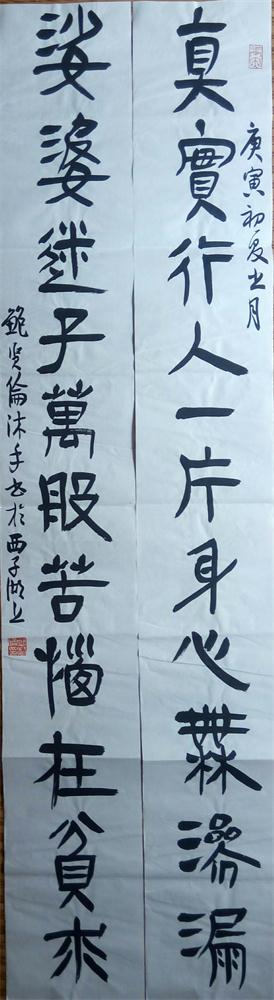 庚寅初夏之月
真實行人一片身心無滲漏
娑婆迷子萬般苦惱在貪求
鮑賢倫沐手書於西子湖上